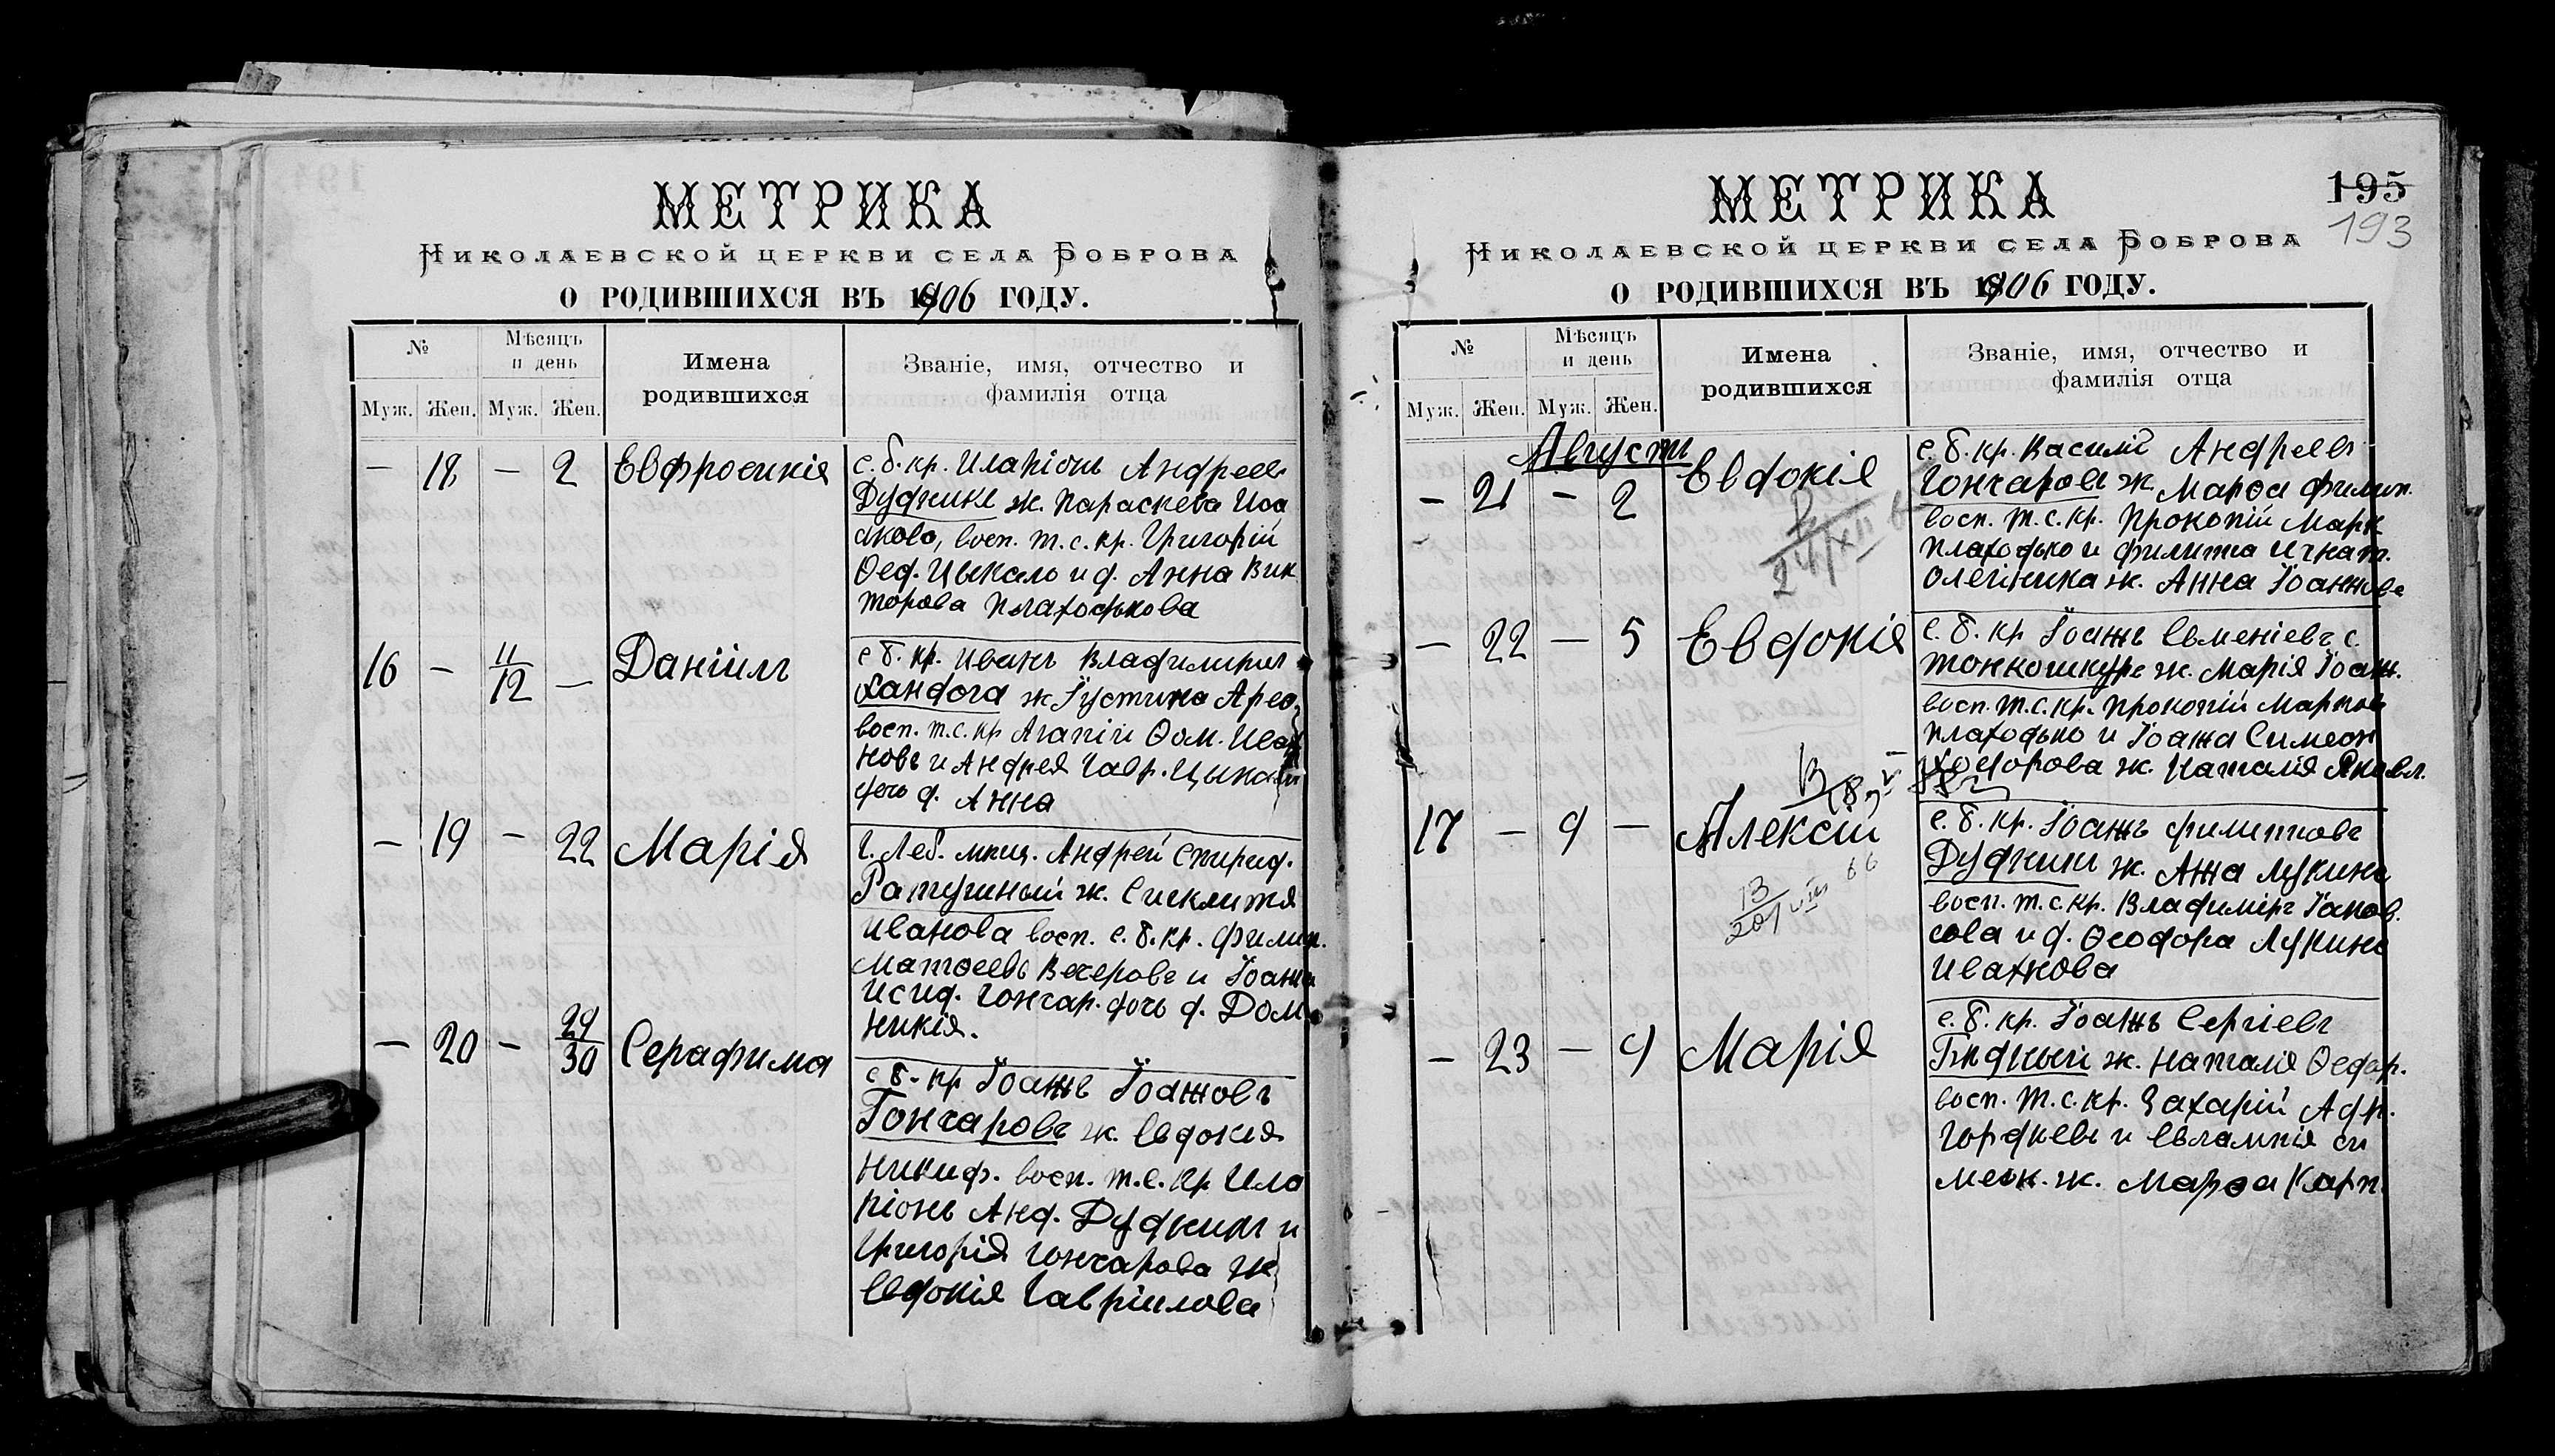 МЕТРИКА
Николаевской церкви села Боброва
О РОДИВШИХСЯ ВЪ 1906 ГОДУ.
№
Мѣсяцъ и день
Имена родившихся
Званіе, имя, отчество и фамилія отца
Муж. Жен. Муж. Жен.
— 18 — 2 Евфросинія
с. б. кр. Иларіонъ Андреев
Дудникъ ж. Параскева Иса
акова, восп. т. с. кр. Григорій
Ѳед. Цыкало и д. Анна Вик
торова Плаходькова
16 — 11/12 — Даніилъ
с б. кр. Иванъ Владимиръ
Хандога ж Іустина Арео.
восп. т. с. кр Агапій Ѳом. Ива
новъ и Андрея Гавр. Цыкал
дочь д. Анна
— 19 — 22 Марія
г. Леб. мѣщ. Андрей Спирид.
Ратушный ж. Сиклитія
Иванова восп. с. б. кр. Филип.
Матѳеевъ Вечеровъ и Іоанна
Исид. Гончар. дочь д. Дом
никія.
— 20 — 29/30 Серафима
с б. кр Іоаннъ Іоанновъ
Гончаровъ ж. Евдокия
Никиф. восп. т. с. кр Ила
ріонъ Анд. Дудникъ и
Григорія Гончарова ж
Евдокія Гавріилова
МЕТРИКА
195
193
Николаевской церкви села Боброва
О РОДИВШИХСЯ ВЪ 1906 ГОДУ.
№
Мѣсяцъ и день
Имена родившихся
Званіе, имя, отчество и фамилія отца
Муж. Жен. Муж. Жен.
Августъ
— 21 — 2 Евдокія
с. б. кр. Василій Андреевъ
Гончаровъ ж. Марѳа Филип.
восп. т. с. кр. Прокопій Марк
Плаходько и Филиппа Игнат.
Олейника ж. Анна Іоаннова
— 22 — 5 Евдокія
с. б. кр Іоаннъ Евменіевъ с.
Тонкошкуръ ж. Марія Іоанн.
восп. т. с. кр. Прокопій Марков
Плаходько и Іоанна Симеон
Ѳедорова ж. Наталія Яковл.
17 — 9 — Алексій
с. б. кр. Іоаннъ Филипповъ
Дудникъ ж. Анна Лукина
восп. т. с. кр. Владиміръ Іаков.
сова и д. Ѳеодора Лукина
Ивахнова
— 23 — 9 Марія
с. б. кр. Іоаннъ Сергіевъ
Бѣдный ж. Наталія Ѳедор.
восп. т. с. кр. Захарій Адр.
Гордѣевъ и Евлампія Си
меон. ж. Марѳа Карп.